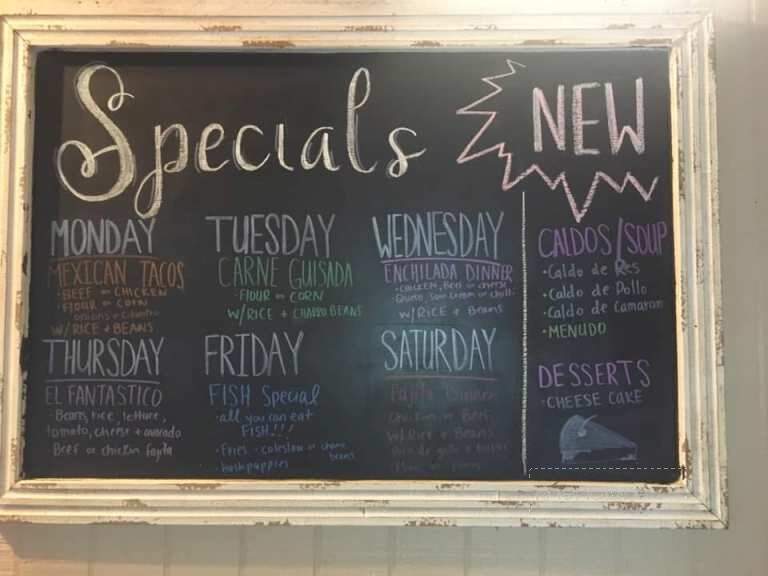 Specials
NEW
MONDAY
MEXICAN TACOS
• BEEF or CHICKEN
• FLOUR or CORN
onions + cilantro
W/ RICE + BEANS
TUESDAY
CARNE GUISADA
• FLOUR or CORN
W/ RICE + CHARRO BEANS
WEDNESDAY
ENCHILADA DINNER
• CHICKEN, Beef or cheese
Queso, Sour cream or chili
W/ RICE + Beans
THURSDAY
EL FANTASTICO
• Beans, rice, lettuce,
tomato, cheese + avocado
Beef or chicken fajita
FRIDAY
FISH Special
• all you can eat
FISH!!!
• Fries • coleslaw or charro
beans
• hushpuppies
SATURDAY
Fajita Dinner
Chicken or Beef
W/ Rice + Beans
Pico de gallo +
CALDOS/SOUP
• Caldo de Res
• Caldo de Pollo
• Caldo de Camaron
• MENUDO
DESSERTS
• CHEESE CAKE